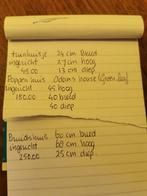 tuinhuisje 24 cm breed
ingericht 27 cm hoog
45.00 13 cm diep
Poppenhuis Adams house (Green Leaf)
ingericht 45 hoog
150.00 40 breed
40 diep
Bruidshuis 60 cm breed
ingericht 60 cm hoog
250.00 25 cm diep